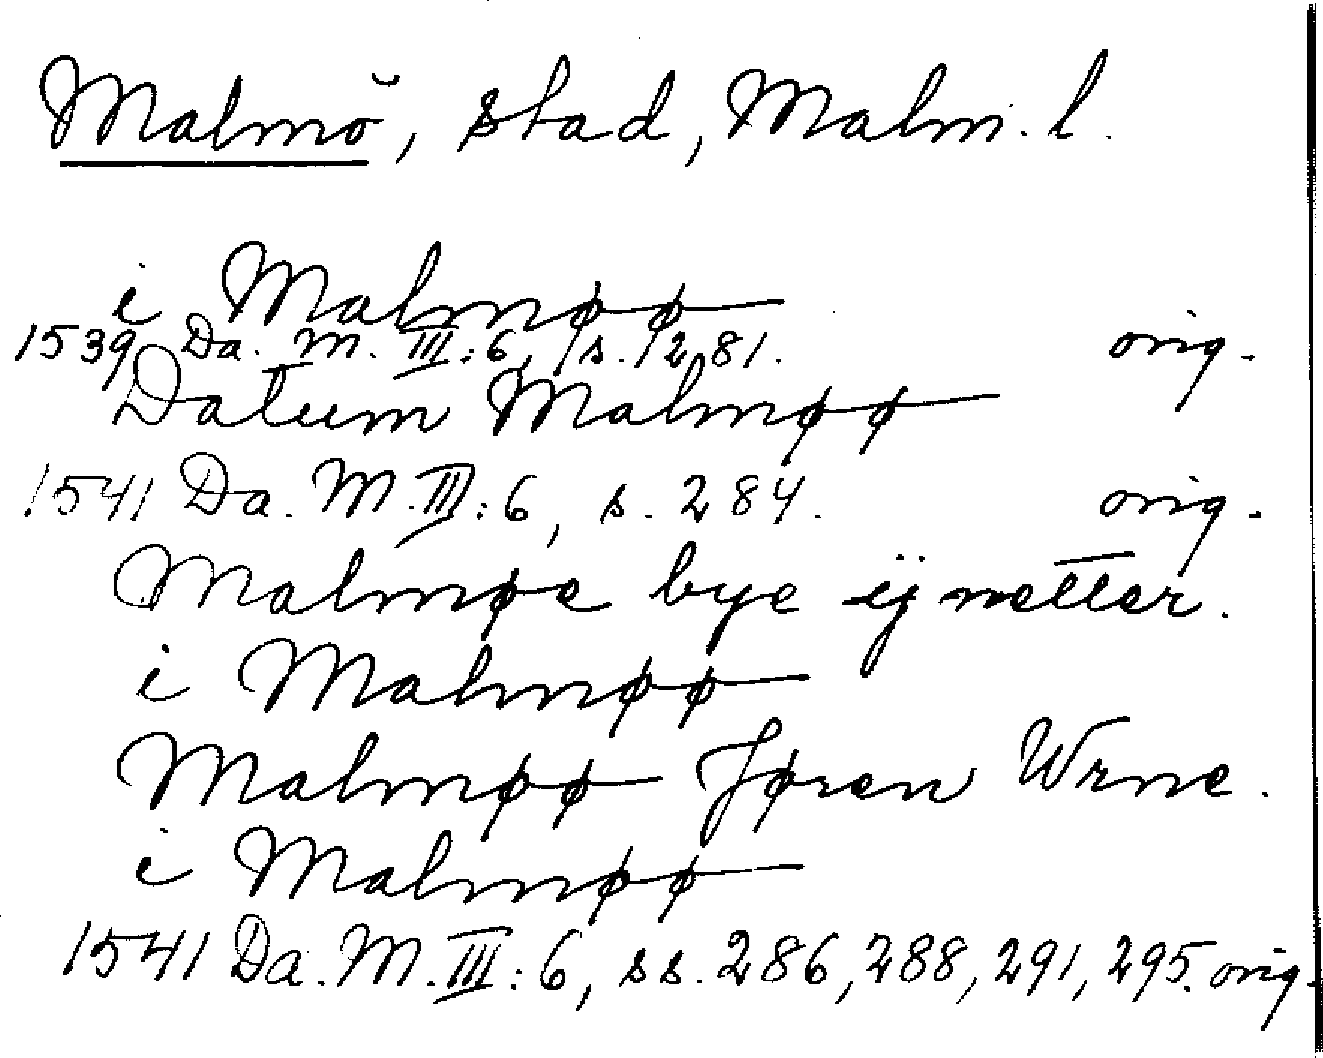 Malmö, stad, Malm. l.
i Malmøø
1539 Da. M. III:6, s. 281. orig.
Datum Malmøø
1541 Da. M. III:6, s. 284. orig.
Malmøe bye ij netter.
i Malmøø
Malmøø Jøren Wrne.
i Malmøø
1541 Da. M. III:6, ss. 286, 288, 291, 295. orig.